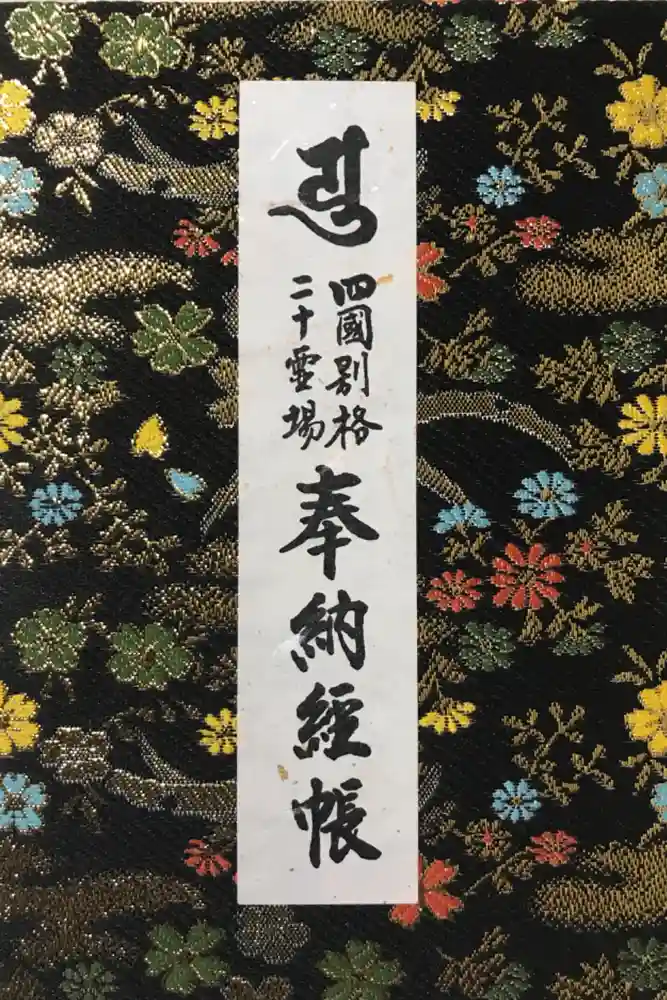 四國別格
二十霊場
奉納經帳